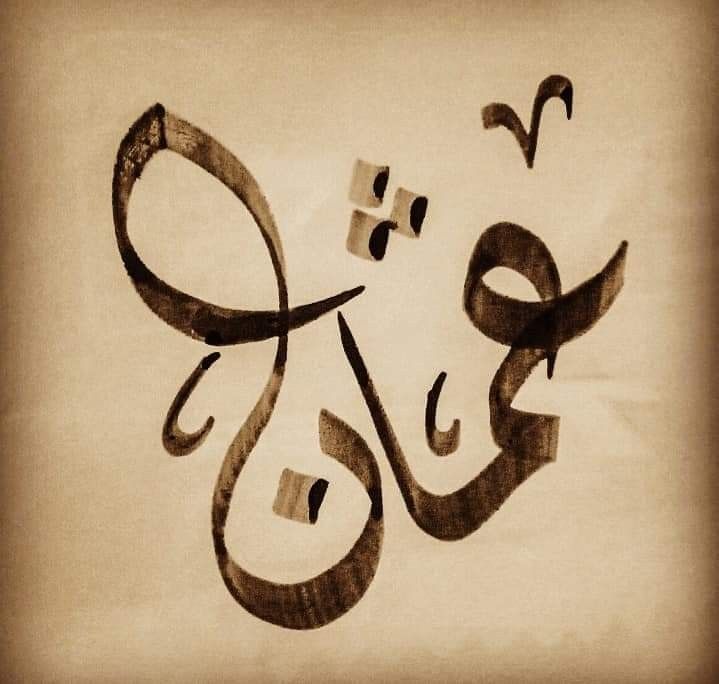 عثمان